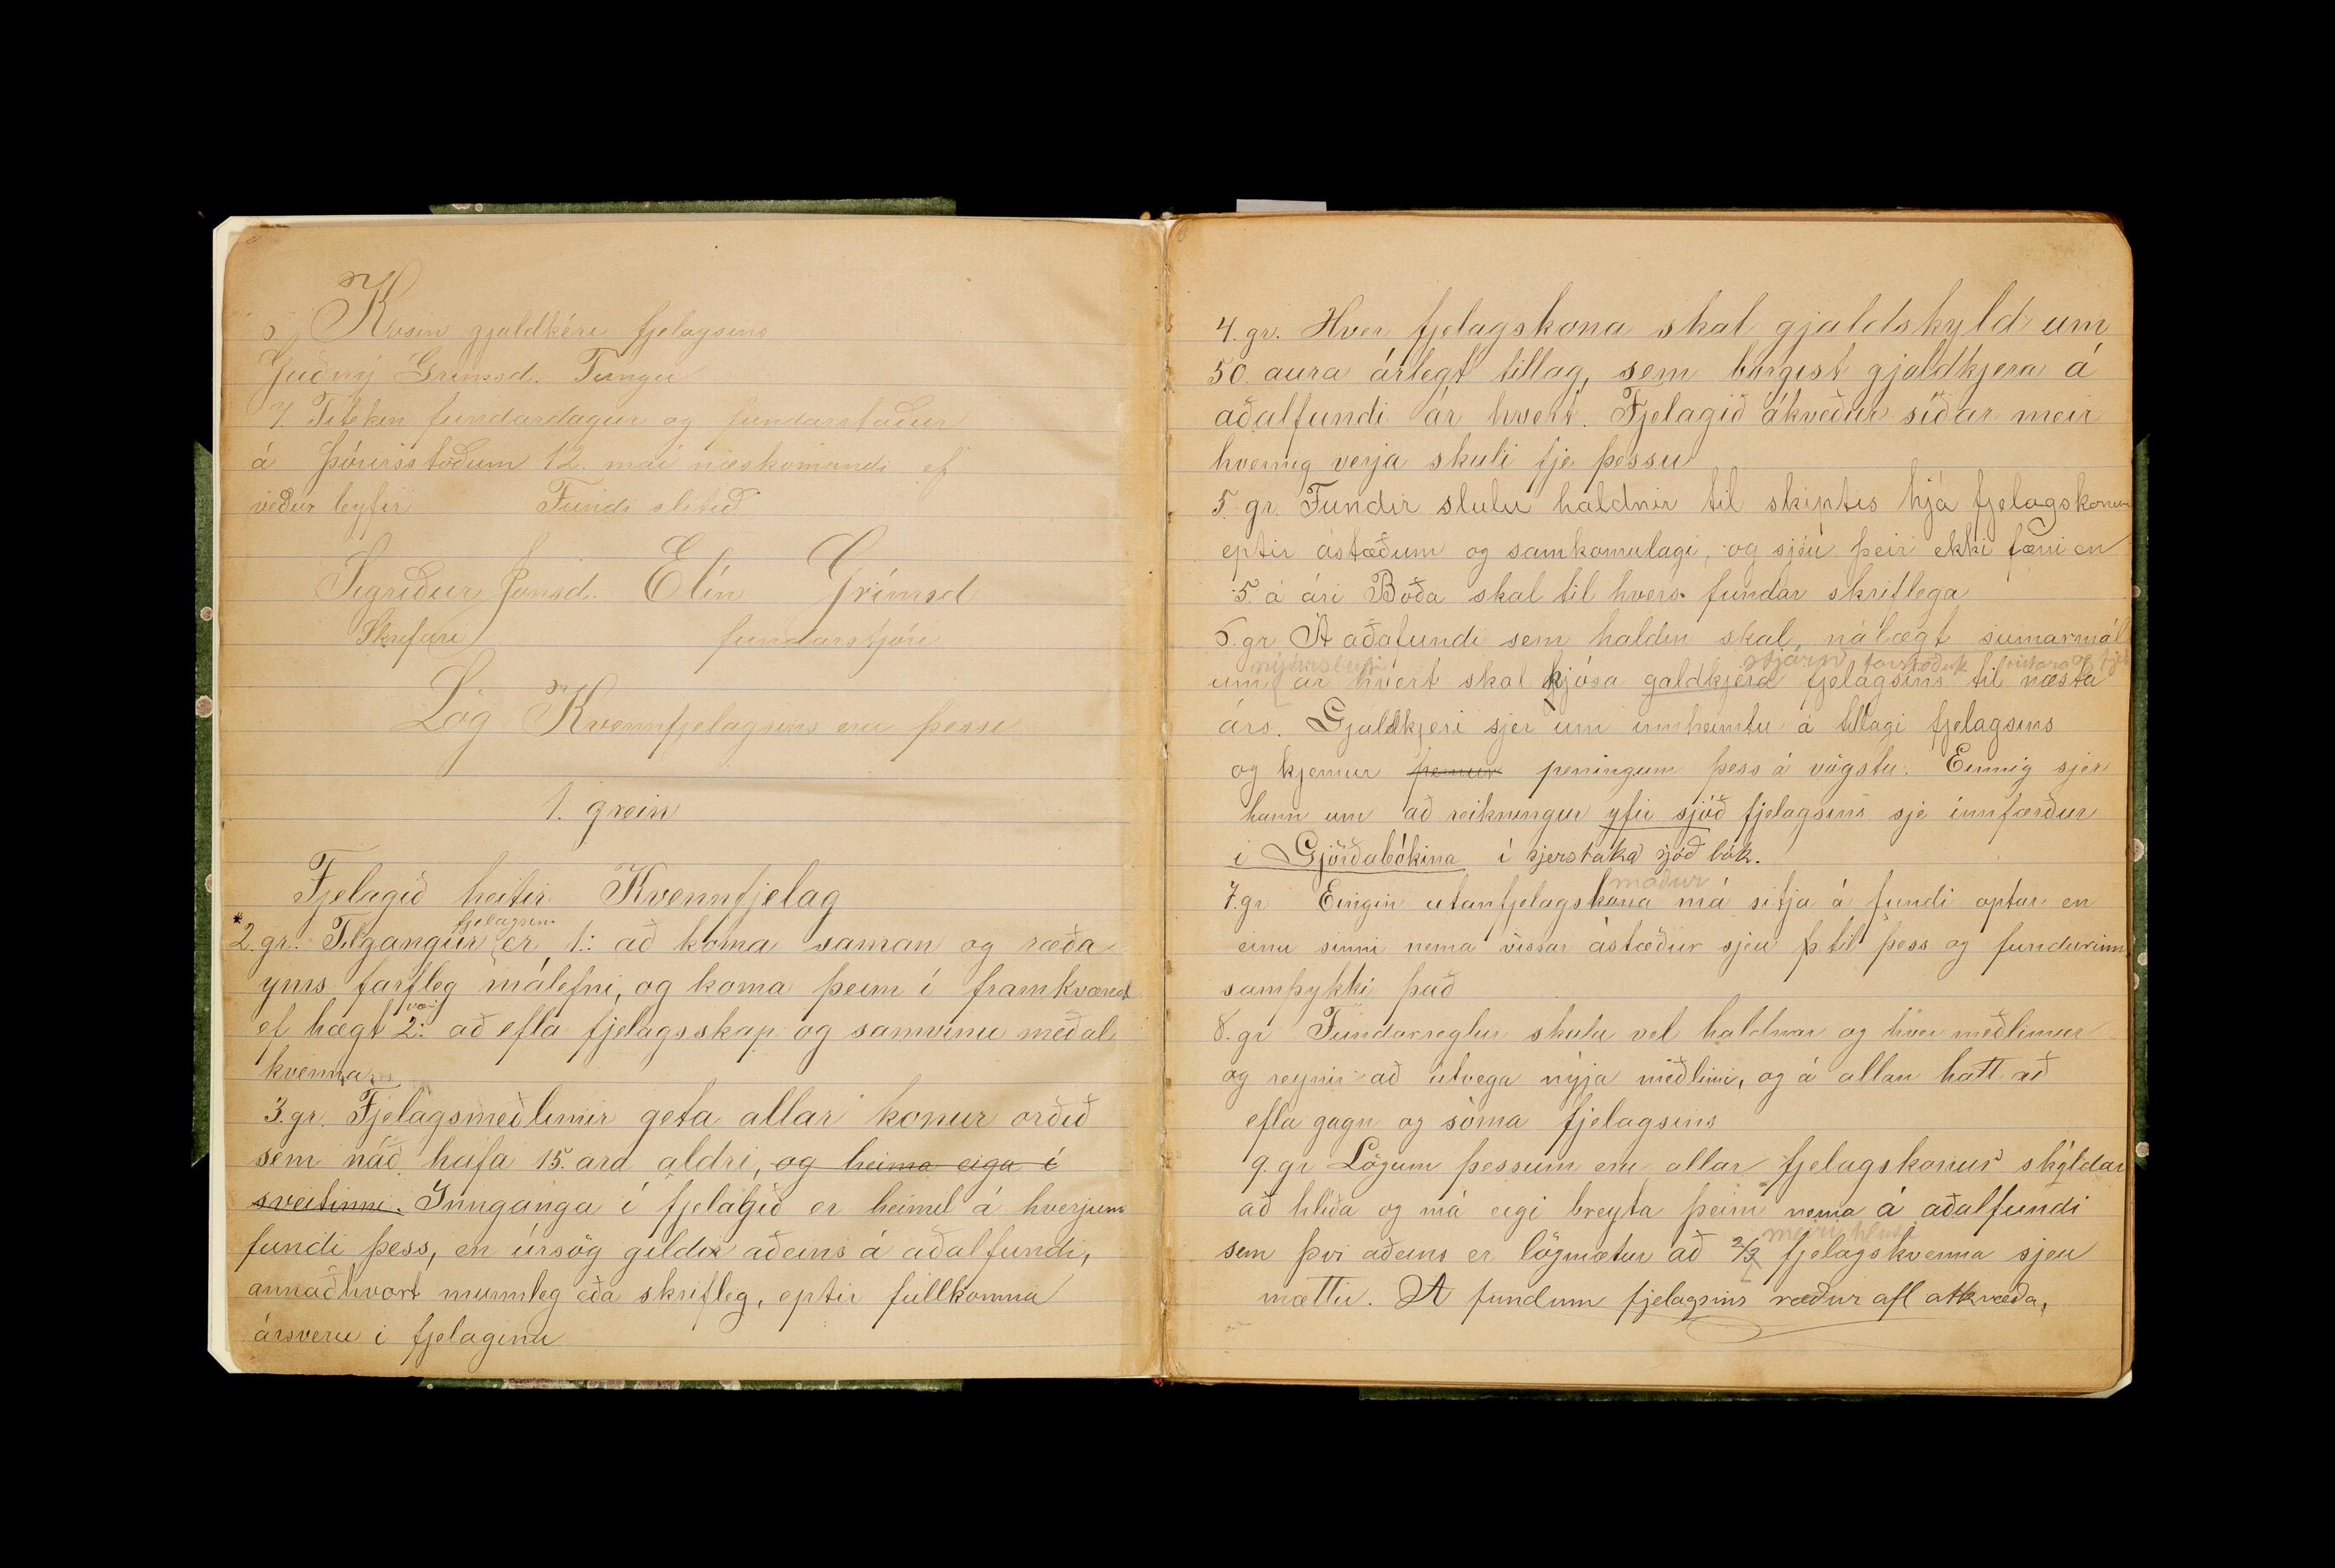 Kosin gjaldkéri fjelagsins
Guðný Grímsd. Tungu
7. Tiltekin fundardagur og fundarstaður
á Þórirsstöðum 12. maí næskomandi ef
veður leyfir Fundi slitið
Sigríður Jónsd. Elín Grímsd
Skrifari fundarstjóri
Lög Kvennfjelagsins eru þessi
1. grein
Fjelagið heitir Kvennfjelag
*2. gr. Tilgangur fjelagsins er, 1: að koma saman og ræða
ýms þarfleg málefni, og koma þeim í framkvæmd
ef hægt væri 2: að efla fjelagsskap og samvinu meðal
kvenna
3. gr. Fjelagsmeðlimir geta allar konur orðið
sem náð hafa 15. ára aldri, og heima eiga í
sveitinni. Innganga í fjelagið er heimil á hverjum
fundi þess, en úrsög gildir aðeins á aðalfundi,
annaðhvort munnleg eða skrifleg, eptir fullkomna
ársveru i fjelaginu
4. gr. Hver fjelagskona skal gjaldskyld um
50. aura árlegt tillag, sem borgist gjaldkjera á
aðalfundi ár hvert. Fjelagið ákveður síðar meir
hvernig verja skuli fje þessu
5. gr. Fundir slulu haldnir til skiptis hjá fjelagskonum
eptir ástæðum og samkomulagi, og sjeu þeir ekki færri en
5. á ári Boða skal til hvers fundar skriflega
6. gr Á aðalundi sem haldin skal, nálægt sumarmál
stjórn forstöðuk
um ár hvert skal kjósa galdkjera fjelagsins til næsta
árs. Gjaldkjeri sjer um innheimtu á tillagi fjelagsins
og kjemur penur peningum þess á vögstu. Einnig sjer
hann um að reikningur yfir sjóð fjelagsins sje innfærður
i Gjörðabókina í sjerstaka sjóð bók.
maður
7. gr Eingin utanfjelagskona má sitja á fundi optar en
einu sinni nema vissar ástæður sjeu þ til þess og fundurinn
samþykki það
8. gr Fundarreglur skulu vel haldnar og hver meðlimur
og reynir að útvega nýja meðlimi, og á allan hatt að
efla gagn og sóma fjelagsins
9. gr Lögum þessum eru allar fjelagskonur skyldar
að hlíða og má eigi breyta þeim nema á aðalfundi
meiri hluti
sem því aðeins er lögmætur að 2/3 fjelagskvenna sjeu
mættir. Á fundum fjelagsins ræður afl atkvæða,